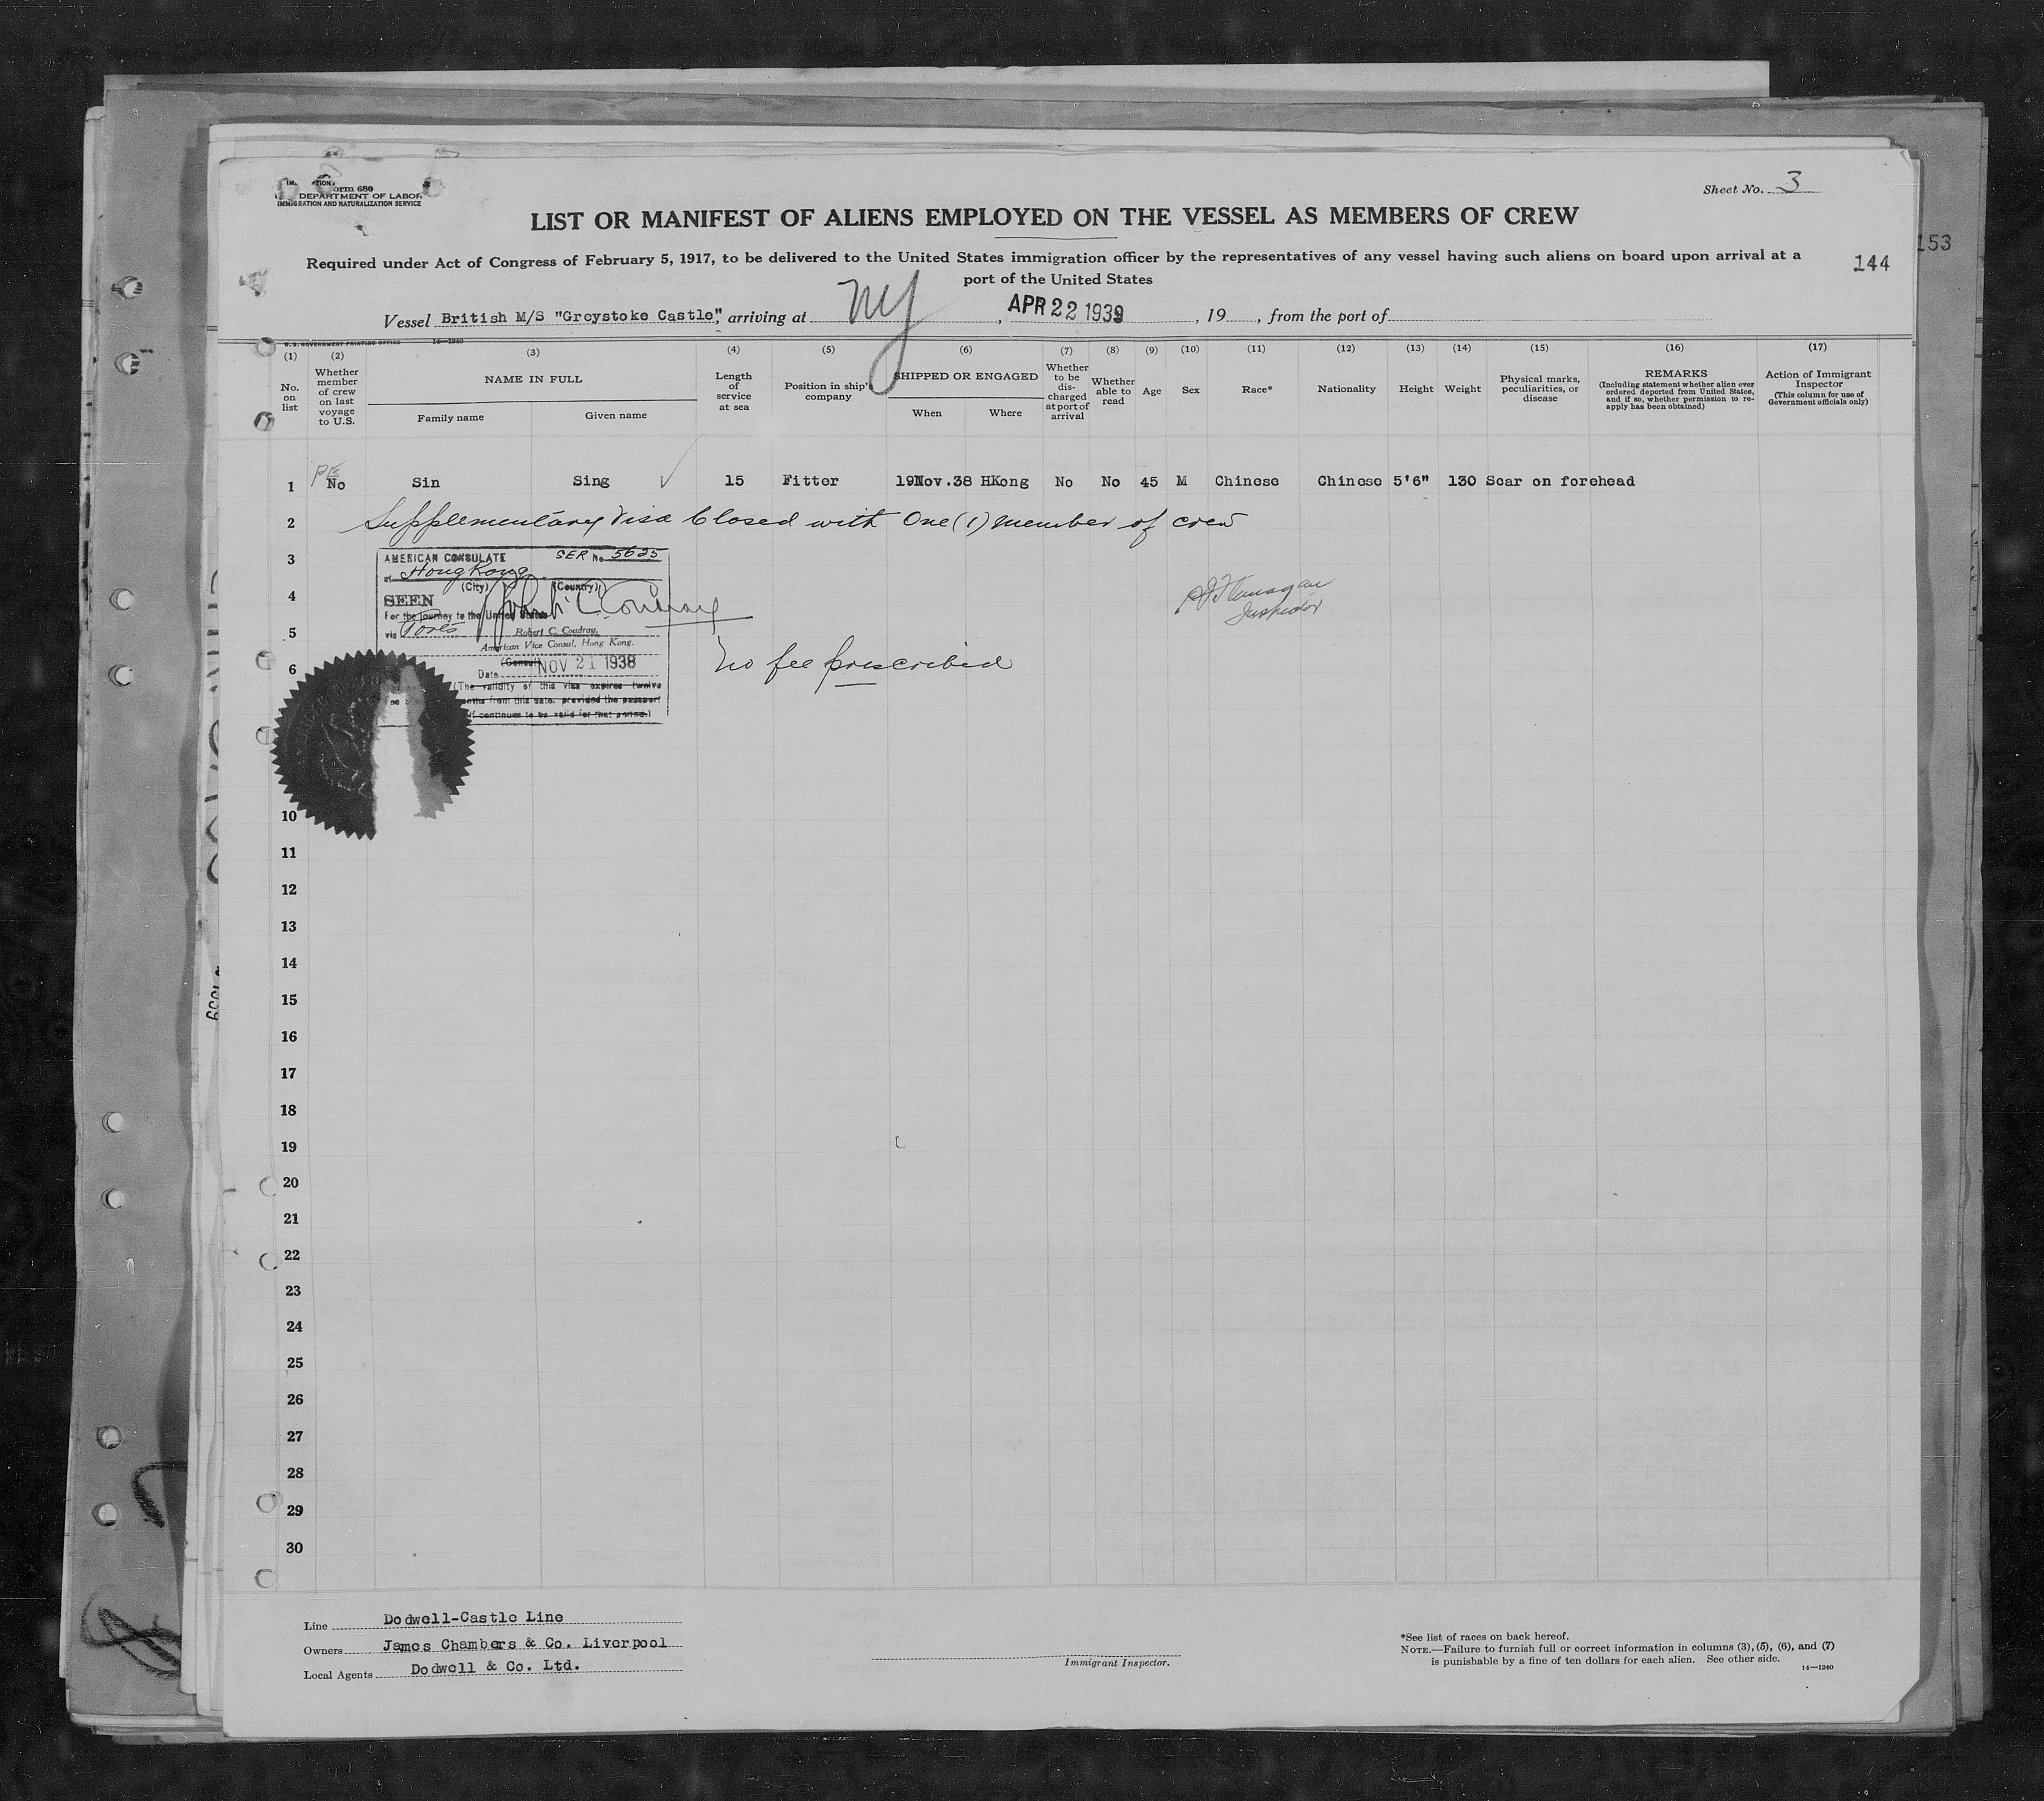 Form 680
DEPARTMENT OF LABOR
IMMIGRATION AND NATURALIZATION SERVICE
Sheet No. 3
LIST OR MANIFEST OF ALIENS EMPLOYED ON THE VESSEL AS MEMBERS OF CREW
153
Required under Act of Congress of February 5, 1917, to be delivered to the United States immigration officer by the representatives of any vessel having such aliens on board upon arrival at a
port of the United States
144
Vessel British M/S "Greystoke Castle", arriving at NY, APR 22 1939, 19, from the port of
U.S. GOVERNMENT PRINTING OFFICE 14—1240
(1) (2) (3) (4) (5) (6) (7) (8) (9) (10) (11) (12) (13) (14) (15) (16) (17)
No. on list
Whether member of crew on last voyage to U.S.
NAME IN FULL
Family name
Given name
Length of service at sea
Position in ship's company
SHIPPED OR ENGAGED
When
Where
Whether to be discharged at port of arrival
Whether able to read
Age
Sex
Race*
Nationality
Height
Weight
Physical marks, peculiarities, or disease
REMARKS
(Including statement whether alien ever ordered deported from United States, and if so, whether permission to re-apply has been obtained)
Action of Immigrant Inspector
(This column for use of Government officials only)
1 No Sin Sing 15 Fitter 19Nov.38 HKong No No 45 M Chinese Chinese 5'6" 130 Scar on forehead
2 Supplementary Visa Closed with One (1) member of crew
3
4
5
6
AMERICAN CONSULATE SER No. 5625
at Hong Kong
(City) (Country)
SEEN
For the journey to the United States
via Ports
Robert C. Coudray,
American Vice Consul, Hong Kong.
(Consul)
Date NOV 21 1938
(The validity of this visa expires twelve
months from this date, provided the passport
continues to be valid for that period.)
Inspector
No fee prescribed
10
11
12
13
14
15
16
17
18
19
20
21
22
23
24
25
26
27
28
29
30
Line Dodwell-Castle Line
Owners James Chambers & Co. Liverpool
Local Agents Dodwell & Co. Ltd.
Immigrant Inspector.
*See list of races on back hereof.
NOTE.—Failure to furnish full or correct information in columns (3), (5), (6), and (7)
is punishable by a fine of ten dollars for each alien. See other side.
14—1240